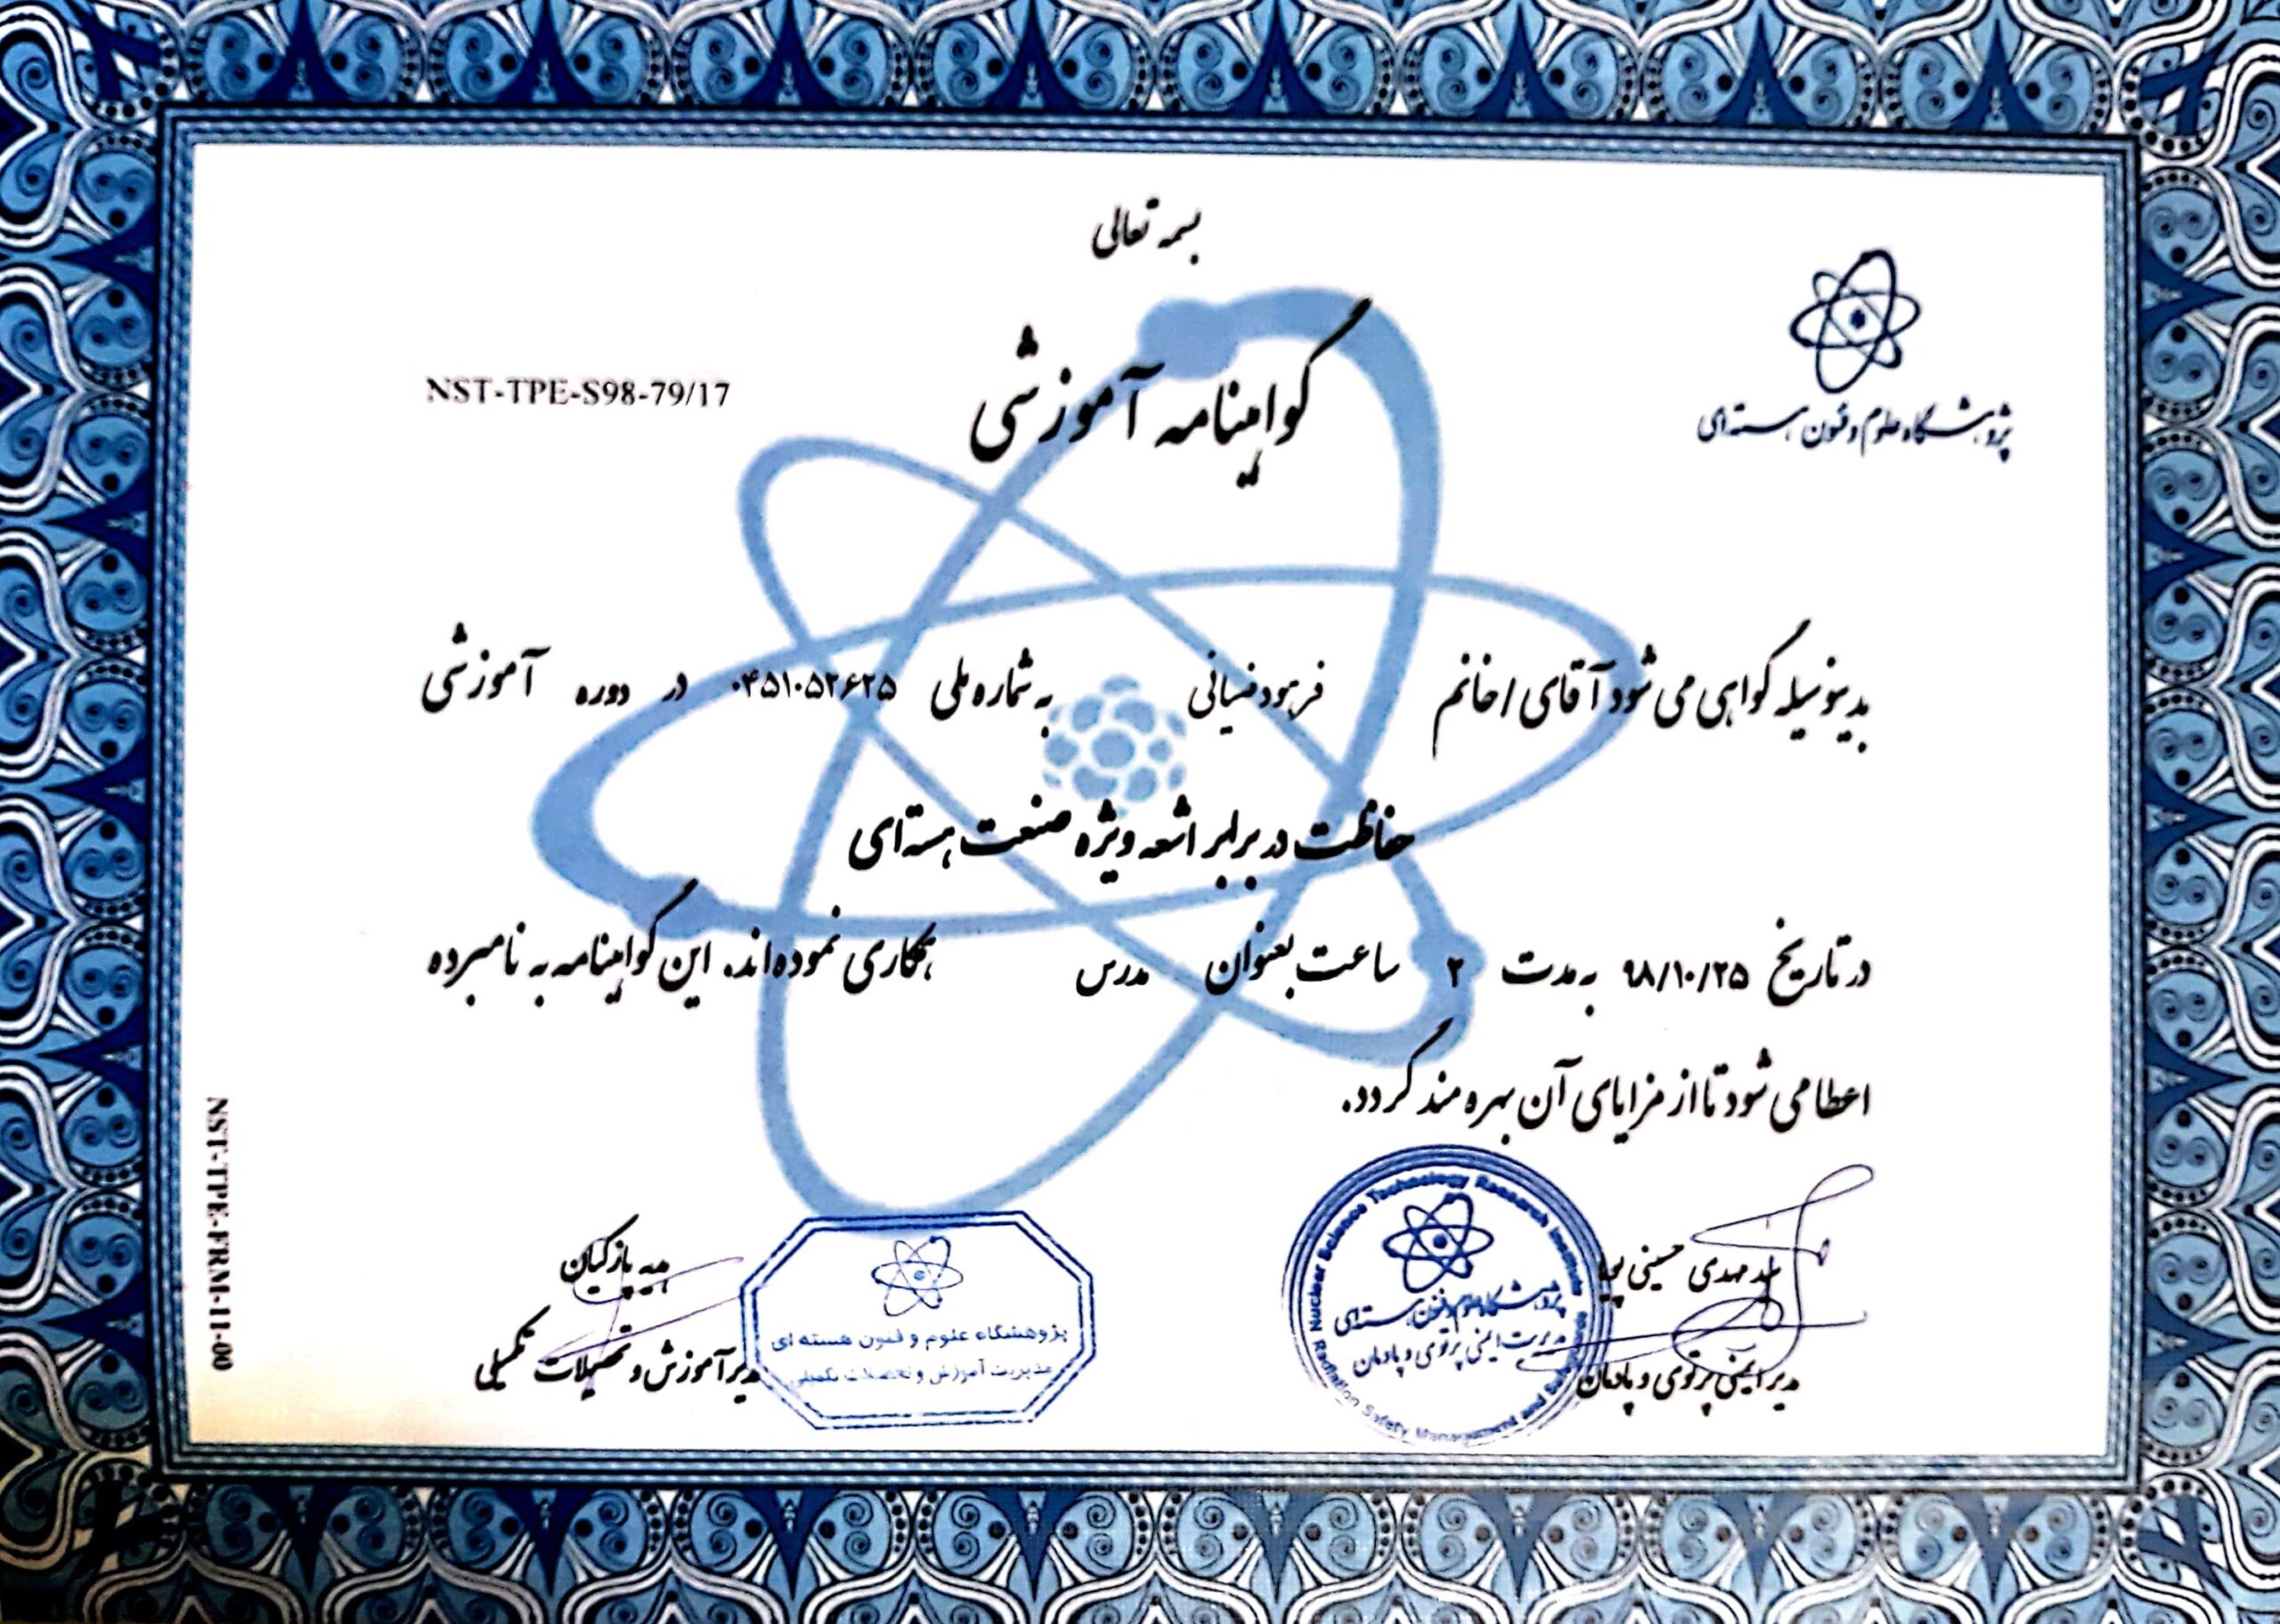 بسمه تعالی
پژوهشگاه علوم و فنون هسته‌ای
گواهینامه آموزشی
NST-TPE-S98-79/17
بدینوسیله گواهی می شود آقای / خانم فرهود ضیائی به شماره ملی ۰۴۵۱۰۵۲۶۲۵ در دوره آموزشی
حفاظت در برابر اشعه ویژه صنعت هسته‌ای
در تاریخ ۹۸/۱۰/۲۵ به مدت ۲ ساعت بعنوان مدرس همکاری نموده‌اند. این گواهینامه به نامبرده
اعطا می شود تا از مزایای آن بهره مند گردد.
سید مهدی حسینی پویا
مدیر ایمنی پرتوی و پادمان
Nuclear Science Technology Research Institute
پژوهشگاه علوم و فنون هسته‌ای
مدیریت ایمنی پرتوی و پادمان
Radiation Safety Management and Safeguards
پازکیان
مدیر آموزش و تحصیلات تکمیلی
پژوهشگاه علوم و فنون هسته ای
مدیریت آموزش و تحصیلات تکمیلی
NST-TPE-FRM-11-00